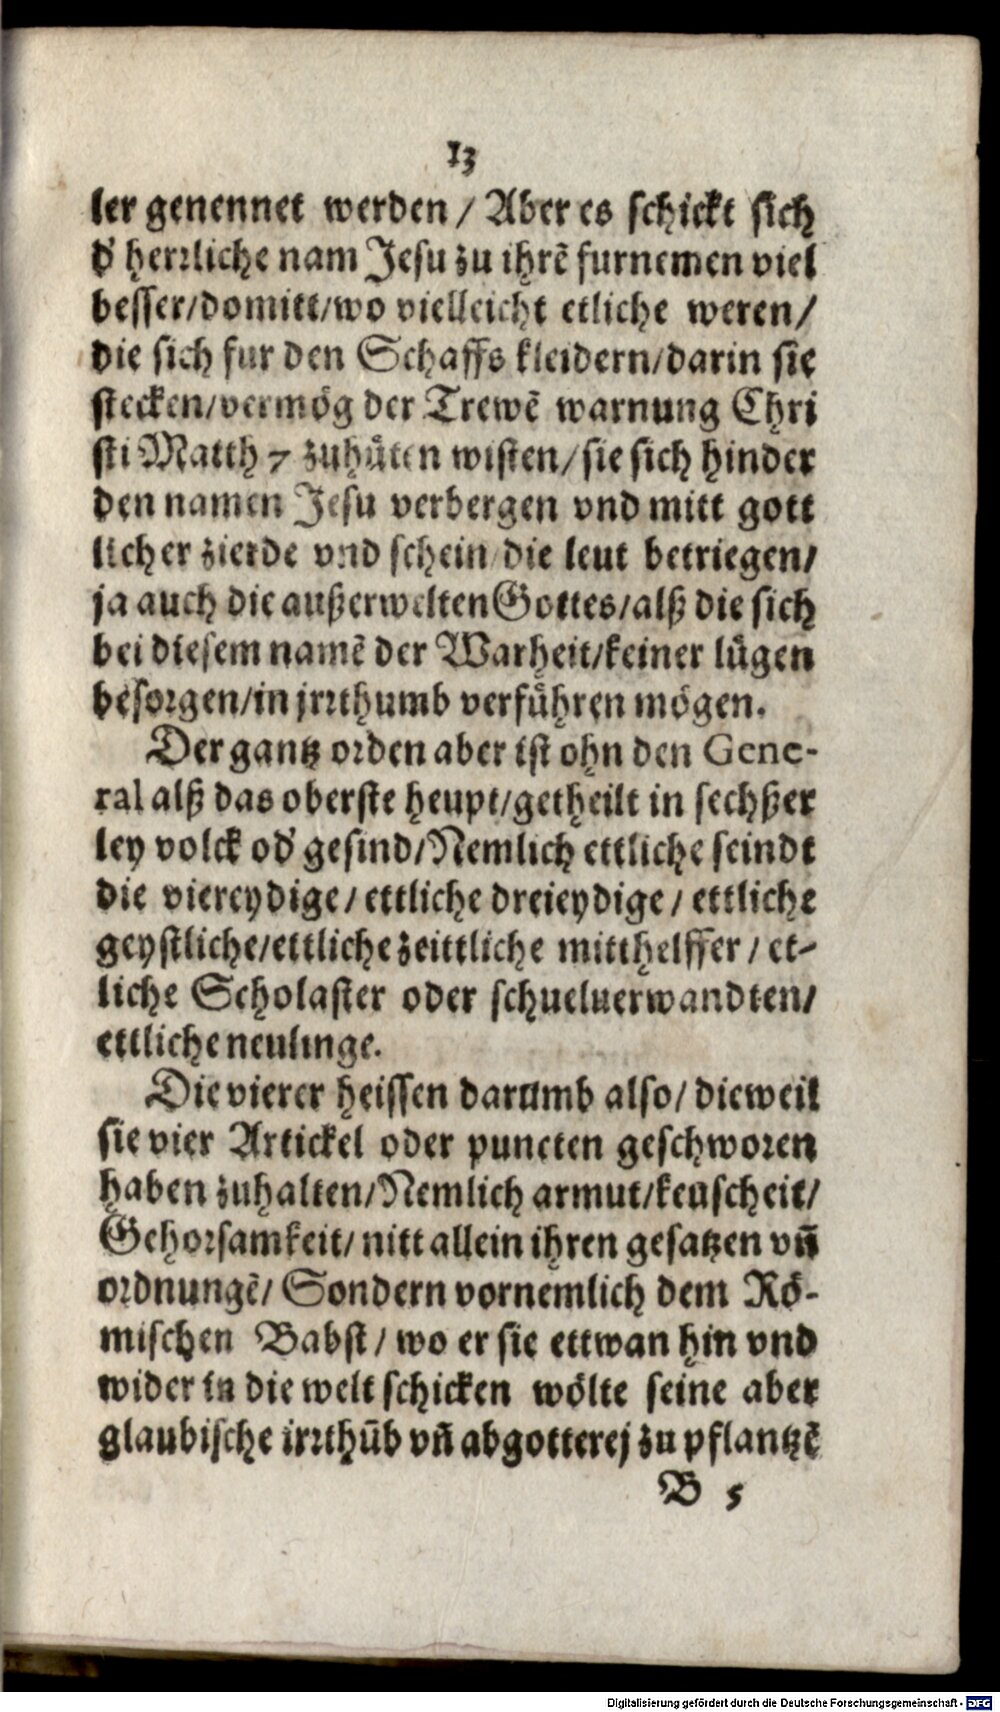 13
ler genennet werden / Aber es schickt sich
d' herrliche nam Jesu zu ihrē furnemen viel
besser/domitt/wo vielleicht etliche weren/
die sich fur den Schaffs kleidern/darin sie
stecken/vermög der Trewē warnung Chri
sti Matth 7 zuhüten wisten/sie sich hinder
den namen Jesu verbergen vnd mitt gott
licher zierde vnd schein/die leut betriegen/
ja auch die außerwelten Gottes/alß die sich
bei diesem namē der Warheit/keiner lügen
besorgen/in jrrthumb verführen mögen.
Der gantz orden aber ist ohn den Gene-
ral alß das oberste heupt/getheilt in sechßer
ley volck od' gesind/Nemlich ettliche seindt
die viereydige/ettliche dreieydige/ettliche
geystliche/ettliche zeittliche mitthelffer/et-
liche Scholaster oder schueluerwandten/
ettliche neulinge.
Die vierer heissen darumb also/dieweil
sie vier Artickel oder puncten geschworen
haben zuhalten/Nemlich armut/keuscheit/
Gehorsamkeit/nitt allein ihren gesatzen vn̄
ordnungē/Sondern vornemlich dem Rö-
mischen Babst/wo er sie ettwan hin vnd
wider in die welt schicken wölte seine aber
glaubische irrthūb vn̄ abgotterej zu pflantzē
B 5
Digitalisierung gefördert durch die Deutsche Forschungsgemeinschaft - DFG